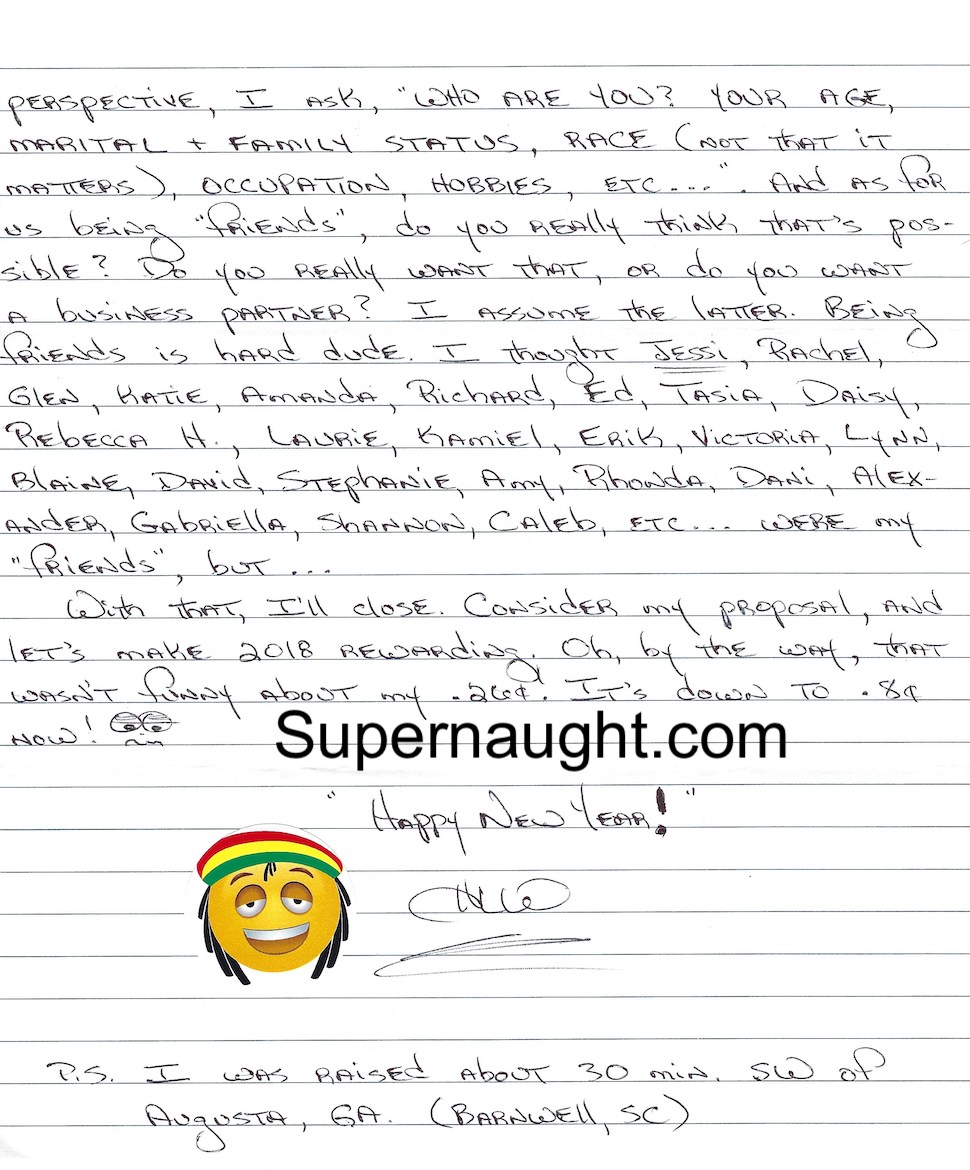 perspective, I ask, "Who are you? Your age,
marital + family status, race (not that it
matters), occupation, hobbies, etc...". And as for
us being "friends", do you really think that's pos-
sible? Do you really want that, or do you want
a business partner? I assume the latter. Being
friends is hard dude. I thought Jessi, Rachel,
Glen, Katie, Amanda, Richard, Ed, Tasia, Daisy,
Rebecca H., Laurie, Kamiel, Erik, Victoria, Lynn,
Blaine, David, Stephanie, Amy, Rhonda, Dani, Alex-
ander, Gabriella, Shannon, Caleb, etc... were my
"friends", but ...
With that, I'll close. Consider my proposal, and
let's make 2018 rewarding. Oh, by the way, that
wasn't funny about my .26¢. It's down to .8¢
now!
Supernaught.com
"Happy New Year!"
P.S. I was raised about 30 min. SW of
Augusta, GA. (Barnwell, SC)